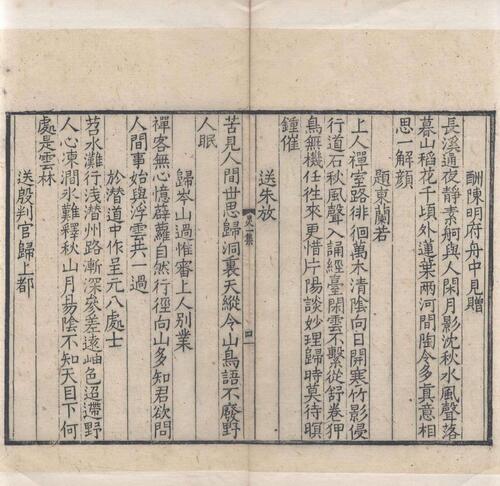 酬陳明府舟中見贈
長溪通夜靜素舸與人閑月影沈秋水風聲落
暮山稻花千頃外蓮葉兩河間陶令多真意相
思一解顏
題東蘭若
上人禪室路徘徊萬木清陰向日開寒竹影侵
行道石秋風聲入誦經臺閑雲不繫從舒卷狎
鳥無機任往來更惜片陽談妙理歸時莫待暝
鐘催
送朱放
苦見人間世思歸洞裏天縱令山鳥語不廢野
人眠
歸岑山過惟審上人別業
禪客無心憶薜蘿自然行徑向山多知君欲問
人間事始與浮雲共一過
於潛道中作呈元八處士
苕水灘行浅潛州路漸深參差遠岫色迢遰野
人心凍澗水難釋秋山月易陰不知天目下何
處是雲林
送殷判官歸上都